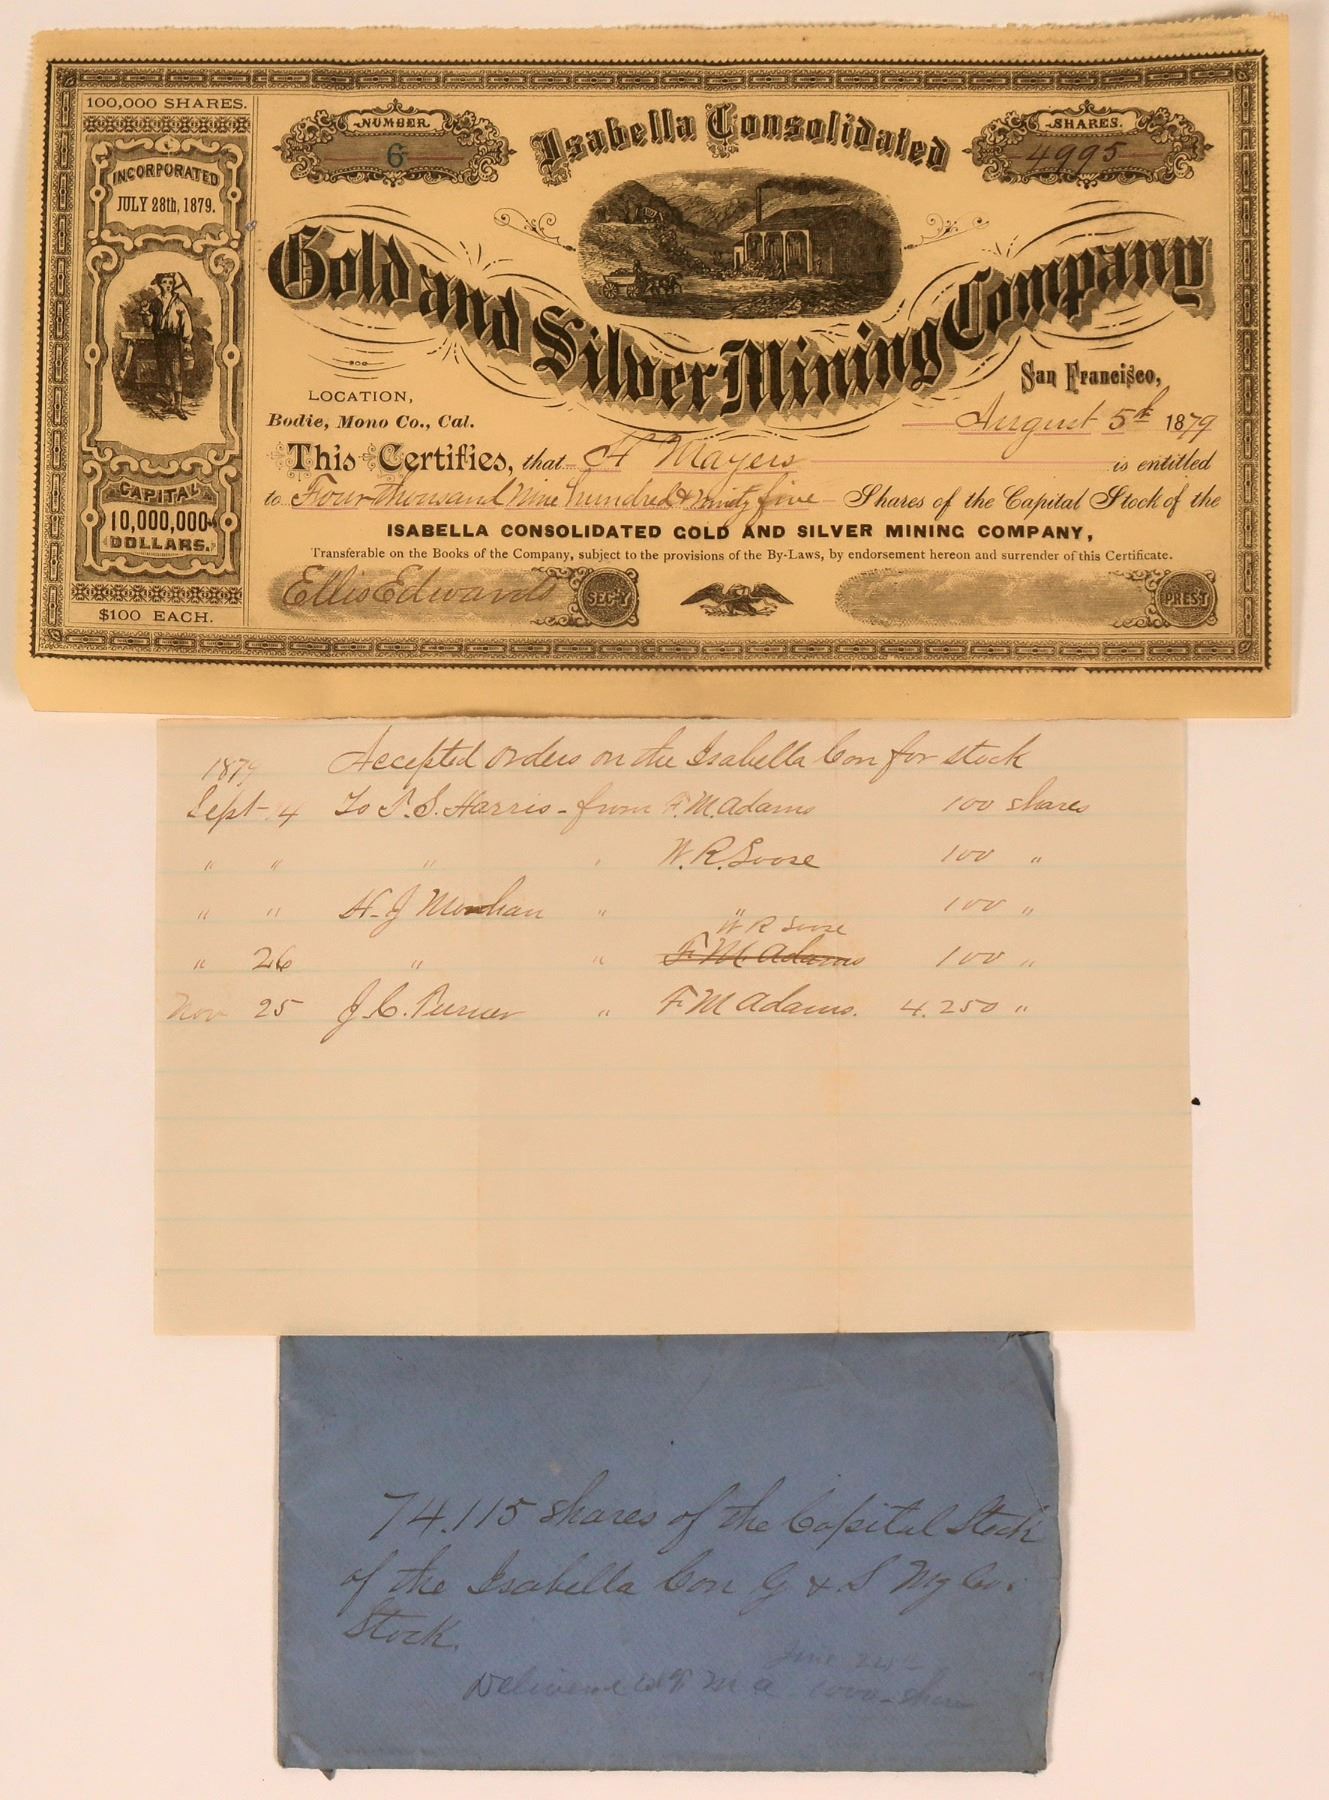 100,000 SHARES.
INCORPORATED
JULY 28th, 1879.
CAPITAL
10,000,000
DOLLARS.
$100 EACH.
NUMBER.
6
Isabella Consolidated
SHARES.
4995
Gold and Silver Mining Company
San Francisco,
LOCATION,
Bodie, Mono Co., Cal.
August 5th 1879
This Certifies, that H Mayers is entitled
to Four thousand Nine hundred & ninty five Shares of the Capital Stock of the
ISABELLA CONSOLIDATED GOLD AND SILVER MINING COMPANY,
Transferable on the Books of the Company, subject to the provisions of the By-Laws, by endorsement hereon and surrender of this Certificate.
Ellis Edwards SEC'Y PREST
1879 Accepted orders on the Isabella Con for stock
Sept 4 To S. Harris - from F. M. Adams 100 shares
" " " " W. R. Loose 100 "
" " H. J " " 100 "
W R Loose
" 26 " " F. M. Adams 100 "
Nov 25 J. C. " F M Adams. 4.250 "
74.115 shares of the Capital Stock
of the Isabella Con G & S Mg Co.
Stock.
June 24th
Delivered F M A 1000 - share